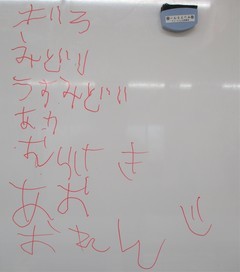 きいろ
みどり
うすみどり
あか
あお
おれんじ